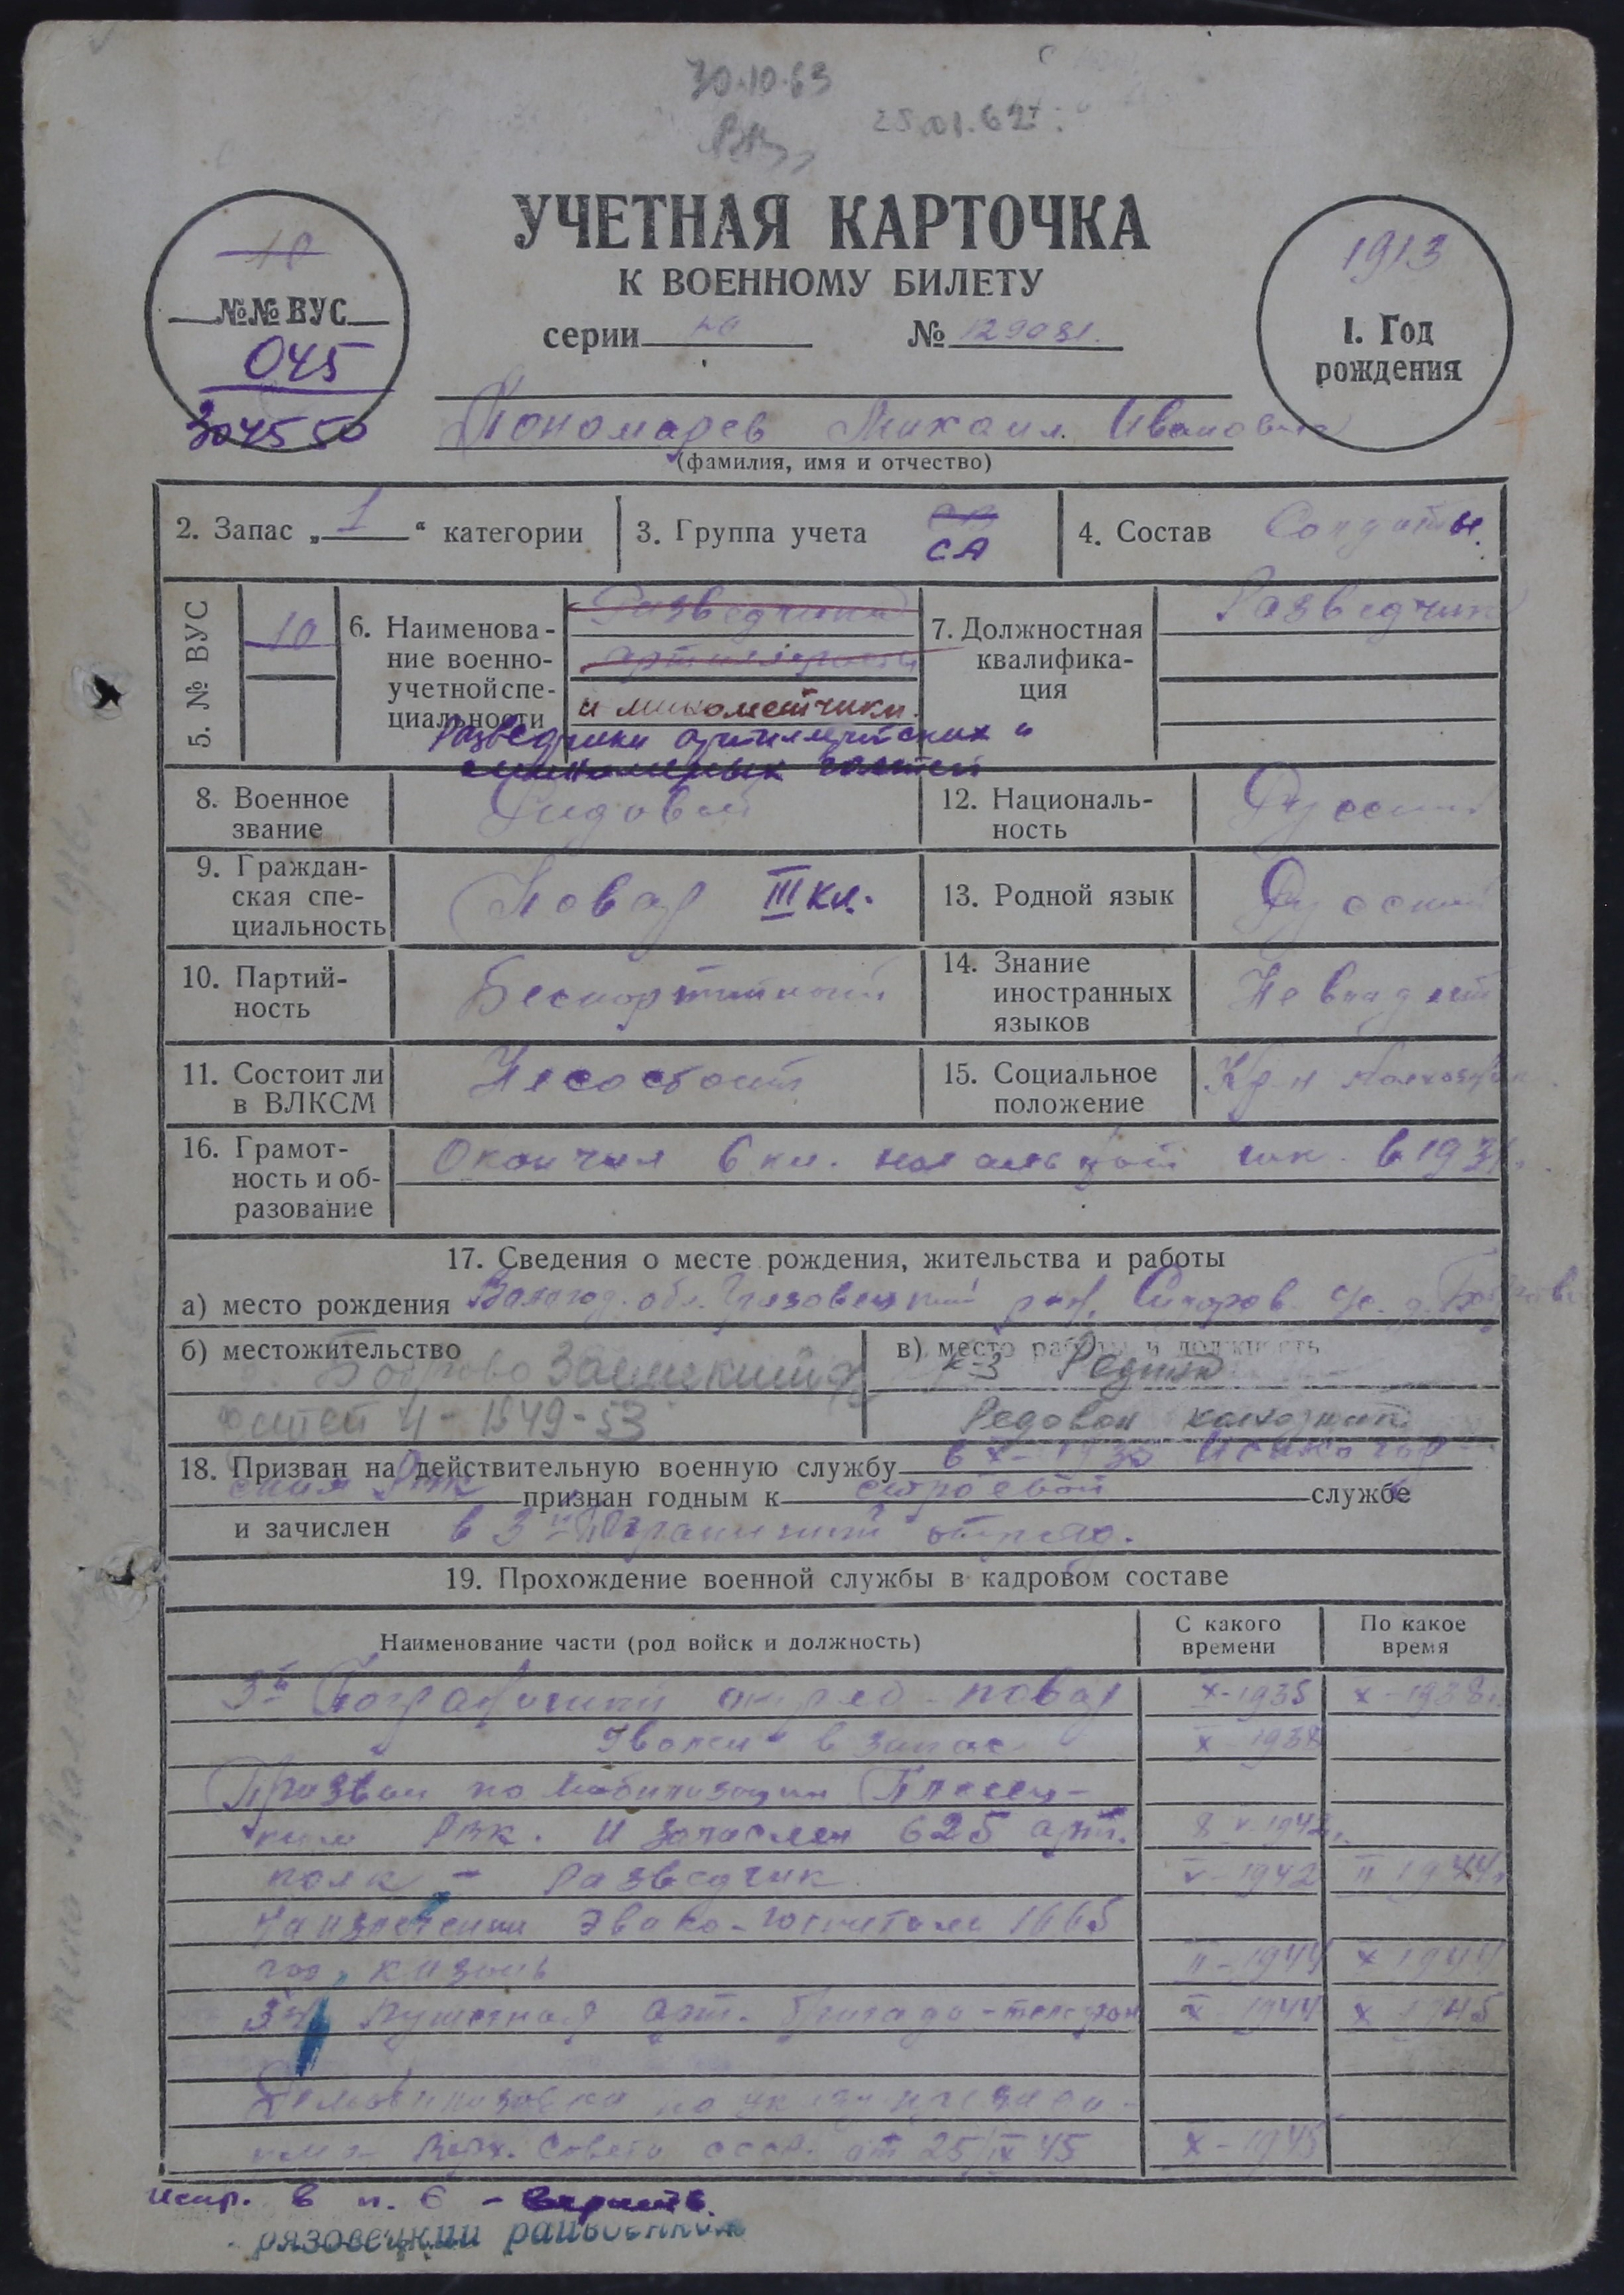 30.10.63
25.01.62г.
УЧЕТНАЯ КАРТОЧКА
К ВОЕННОМУ БИЛЕТУ
серии № 129081.
10
№№ ВУС
045
304550
1913
1. Год
рождения
Пономарев Михаил Иванович
(фамилия, имя и отчество)
2. Запас „ 1 “ категории
3. Группа учета СА
4. Состав Солдаты.
5. № ВУС 10
6. Наименова-
ние военно-
учетной спе-
циальности
Разведчики
артиллерист
и минометчики.
Разведчики артиллерийских и
минометных частей
7. Должностная
квалифика-
ция
Разведчик
8. Военное
звание
Рядовой
12. Националь-
ность
Русский
9. Граждан-
ская спе-
циальность
Повар III кл.
13. Родной язык
Русский
10. Партий-
ность
Беспартийный
14. Знание
иностранных
языков
Не владеет
11. Состоит ли
в ВЛКСМ
Несостоит
15. Социальное
положение
Кр-н колхозник
16. Грамот-
ность и об-
разование
Окончил 6 кл. начальной шк. в 1931г.
17. Сведения о месте рождения, жительства и работы
а) место рождения Вологод. обл. Грязовецкий р-н, Сидоров. с/с. д.
б) местожительство
Боброво Заемский с/с
детей 4 - 1949 - 53
в) место работы и должность
к-з Родина
Рядовой колхозник
18. Призван на действительную военную службу в X-1935
РВК признан годным к строевой службе
и зачислен в 3й Пограничный отряд.
19. Прохождение военной службы в кадровом составе
Наименование части (род войск и должность)
С какого
времени
По какое
время
3й Пограничный отряд - повар X-1935 X-1938г.
Уволен в запас X 1938
Призван по мобилизации Плесец-
ким РВК. И зачислен 625 арт. 8 V-1942г.
полк - Разведчик V-1942 II 1944г.
На излечении Эвако-госпитале 1665
гор. Казань II-1944 X 1944
Пушечная арт. бригада - телефон X 1944 X 1945
Демобилизован по указу президи-
ума Верх. Совета СССР. от 25/IX 45 X-1945
испр. в п. 6 - верить.
рязовецкий райвоенком